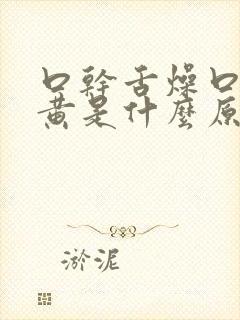 口幹舌燥口
黄是什麼原
淤泥